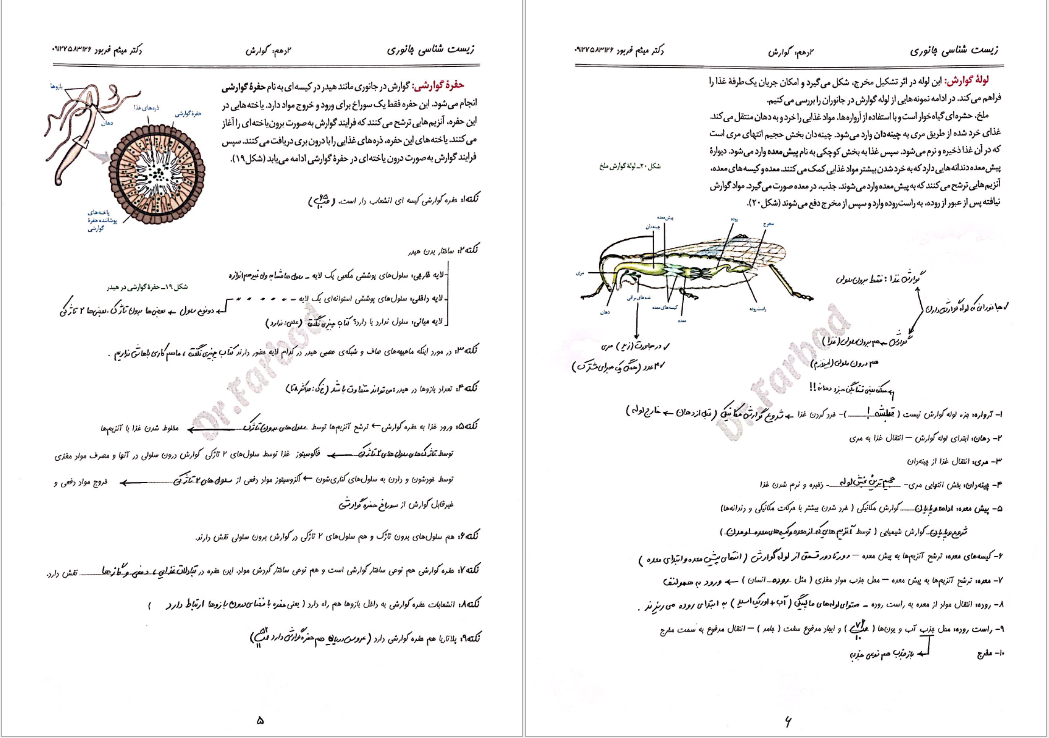 زیست شناسی جانوری
دهم: گوارش
دکتر میثم فربود ۰۹۱۲۷۵۸۳۱۲۶
حفرهٔ گوارشی: گوارش در جانوری مانند هیدر در کیسه ای به نام حفرهٔ گوارشی
انجام می‌شود. این حفره فقط یک سوراخ برای ورود و خروج مواد دارد. یاخته‌هایی در
این حفره، آنزیم‌هایی ترشح می‌کنند که فرایند گوارش به‌صورت برون‌یاخته‌ای را آغاز
می‌کنند. یاخته‌های این حفره، ذره‌های غذایی را با درون بری دریافت می‌کنند. سپس
فرایند گوارش به‌صورت درون یاخته‌ای در حفرهٔ گوارشی ادامه می‌یابد (شکل۱۹).
بازوها
دهان
ذره‌های غذا
حفرهٔ گوارشی
یاخته‌های
پوشاننده حفرهٔ
گوارشی
شکل ۱۹ـ حفرهٔ گوارشی در هیدر
نکته۱: حفره گوارشی کیسه ای انشعاب دار است.
نکته۲: ساختار بدن هیدر
لایه خارجی: سلول‌های پوششی مکعبی یک لایه
لایه داخلی: سلول‌های پوششی استوانه‌ای یک لایه
دو نوع سلول
لایه میانی: سلول ندارد یا دارد؟ کتاب چیزی نگفته
نکته۳: در مورد اینکه ماهیچه‌های صاف و شبکه‌ی عصبی هیدر در کدام لایه حضور دارند کتاب چیزی نگفته
نکته۴: تعداد بازوها در هیدر: می‌تواند متفاوت باشد
نکته۵: ورود غذا به حفره گوارشی ← ترشح آنزیم‌ها توسط سلول‌های بدون تاژک ← مخلوط شدن غذا با آنزیم‌ها
توسط تاژک‌های سلول‌های ۲ تاژکی ← فاگوسیتوز غذا توسط سلول‌های ۲ تاژکی گوارش درون سلولی در آنها و مصرف مواد مغذی
توسط خودشون و دادن به سلول‌های کناریشون ← اگزوسیتوز مواد دفعی از سلول‌های ۲ تاژکی ← خروج مواد دفعی و
غیرقابل گوارش از سوراخ حفره گوارشی
نکته۶: هم سلول‌های بدون تاژک و هم سلول‌های ۲ تاژکی در گوارش برون سلولی نقش دارند.
نکته۷: حفره گوارشی هم نوعی ساختار گوارشی است و هم نوعی ساختار گردش مواد. این حفره در تبادلات غذایی، دفعی و گازها نقش دارد.
نکته۸: انشعابات حفره گوارشی به داخل بازوها هم راه دارد ( یعنی حفره با فضای درون بازوها ارتباط دارد )
نکته۹: پلاناریا هم حفره گوارشی دارد (عروس دریایی هم حفره گوارشی دارد
Dr.Farbod
۵
زیست شناسی جانوری
دهم: گوارش
دکتر میثم فربود ۰۹۱۲۷۵۸۳۱۲۶
لولهٔ گوارش: این لوله در اثر تشکیل مخرج، شکل می‌گیرد و امکان جریان یک‌طرفهٔ غذا را
فراهم می‌کند. در ادامه نمونه‌هایی از لوله گوارش در جانوران را بررسی می‌کنیم.
ملخ، حشره‌ای گیاه‌خوار است و با استفاده از آرواره‌ها، مواد غذایی را خرد و به دهان منتقل می‌کند.
غذای خرد شده از طریق مری به چینه‌دان وارد می‌شود. چینه‌دان بخش حجیم انتهای مری است
که در آن غذا ذخیره و نرم می‌شود. سپس غذا به بخش کوچکی به نام پیش‌معده وارد می‌شود. دیوارهٔ
پیش‌معده دندانه‌هایی دارد که به خرد شدن بیشتر مواد غذایی کمک می‌کنند. معده و کیسه‌های معده،
آنزیم‌هایی ترشح می‌کنند که به پیش‌معده وارد می‌شوند. جذب، در معده صورت می‌گیرد. مواد گوارش
نیافته پس از عبور از روده، به راست‌روده وارد و سپس از مخرج دفع می‌شوند (شکل۲۰).
شکل ۲۰ـ لولهٔ گوارش ملخ
پیش‌معده
چینه‌دان
روده
مخرج
مری
دهان
غده‌های بزاقی
کیسه‌های معده
معده
راست‌روده
گوارش غذا: فقط برون سلولی
جانورانی که لوله گوارشی دارن
گوارش
هم برون سلولی (غذا)
هم درون سلولی
۱- آرواره: جزء لوله گوارش نیست - خرد کردن غذا ← شروع گوارش مکانیکی (قبل از دهان ← خارج لوله)
۲- دهان: ابتدای لوله گوارش – انتقال غذا به مری
۳- مری: انتقال غذا از چینه‌دان
۴- چینه‌دان: بخش انتهایی مری- حجیم ترین بخش لوله - ذخیره و نرم شدن غذا
۵- پیش معده: ادامه و پایان گوارش مکانیکی ( خرد شدن بیشتر با حرکات مکانیکی و دندانه‌ها)
گوارش شیمیایی ( توسط آنزیم های
۶- کیسه‌های معده: ترشح آنزیم‌ها به پیش معده –
۷- معده: ترشح آنزیم‌ها به پیش معده – محل جذب مواد مغذی ( مثل روده انسان ) ← ورود به همولنف
۸- روده: انتقال مواد از معده به راست روده – محتوای لوله‌های مالپیگی (آب + اوریک اسید) به ابتدای روده می ریزند .
۹- راست روده: محل جذب آب و یون‌ها و ایجاد مدفوع سفت ( جامد ) – انتقال مدفوع به سمت مخرج
۱۰- مخرج
بازجذب هم نوعی جذب
Dr.Farbod
۶